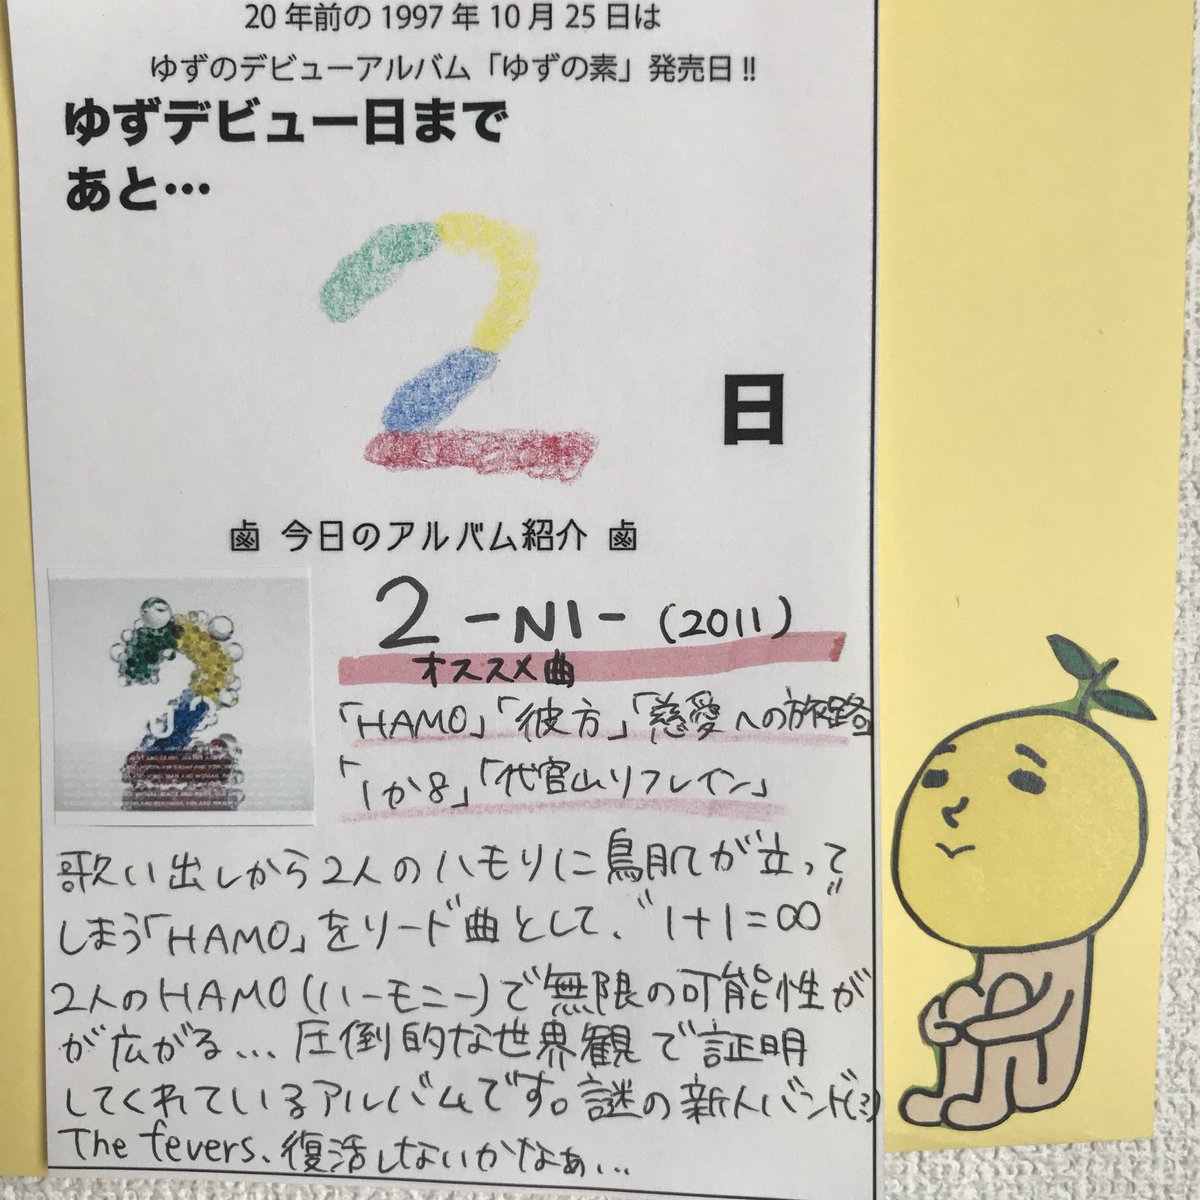 20年前の1997年10月25日は
ゆずのデビューアルバム「ゆずの素」発売日!!
ゆずデビュー日まで
あと…
2
日
鹵 今日のアルバム紹介 鹵
2 -NI- (2011)
オススメ曲
「HAMO」「彼方」「慈愛への旅路」
「1か8」「代官山リフレイン」
歌い出しから2人のハモりに鳥肌が立って
しまう「HAMO」をリード曲として、"1+1=∞"
2人のHAMO(ハーモニー)で無限の可能性が
が広がる… 圧倒的な世界観で証明
してくれているアルバムです。謎の新人バンド(?)
The fevers、復活しないかなぁ…